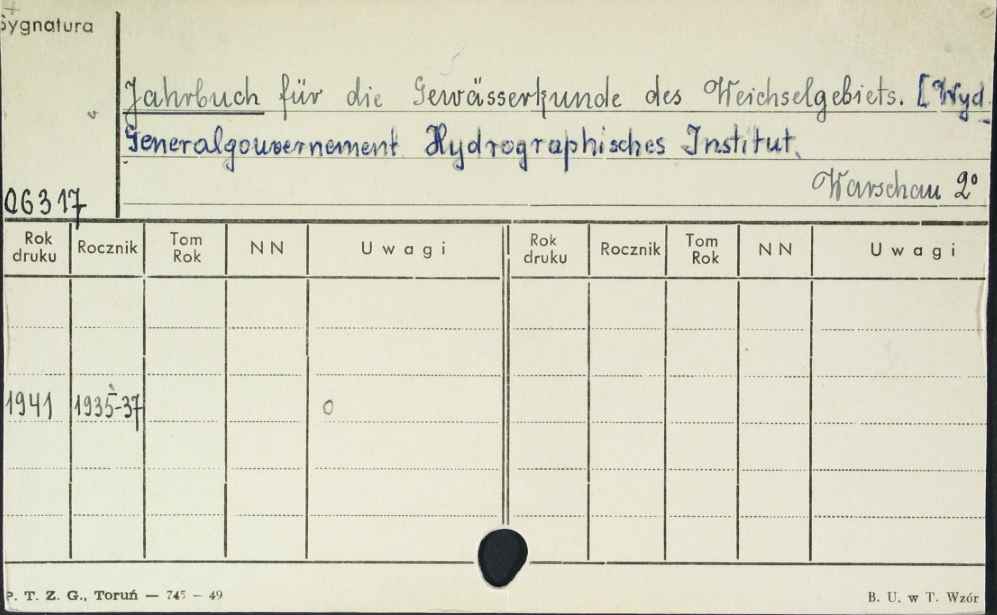 Sygnatura
Jahrbuch für die Gewässerkunde des Weichselgebiets. [Wyd.
Generalgouvernement Hydrographisches Institut.
Warschau 2°
06317
Rok druku Rocznik Tom Rok NN Uwagi Rok druku Rocznik Tom Rok NN Uwagi
1941 1935-37 O
P. T. Z. G., Toruń — 745 — 49 B. U. w T. Wzór